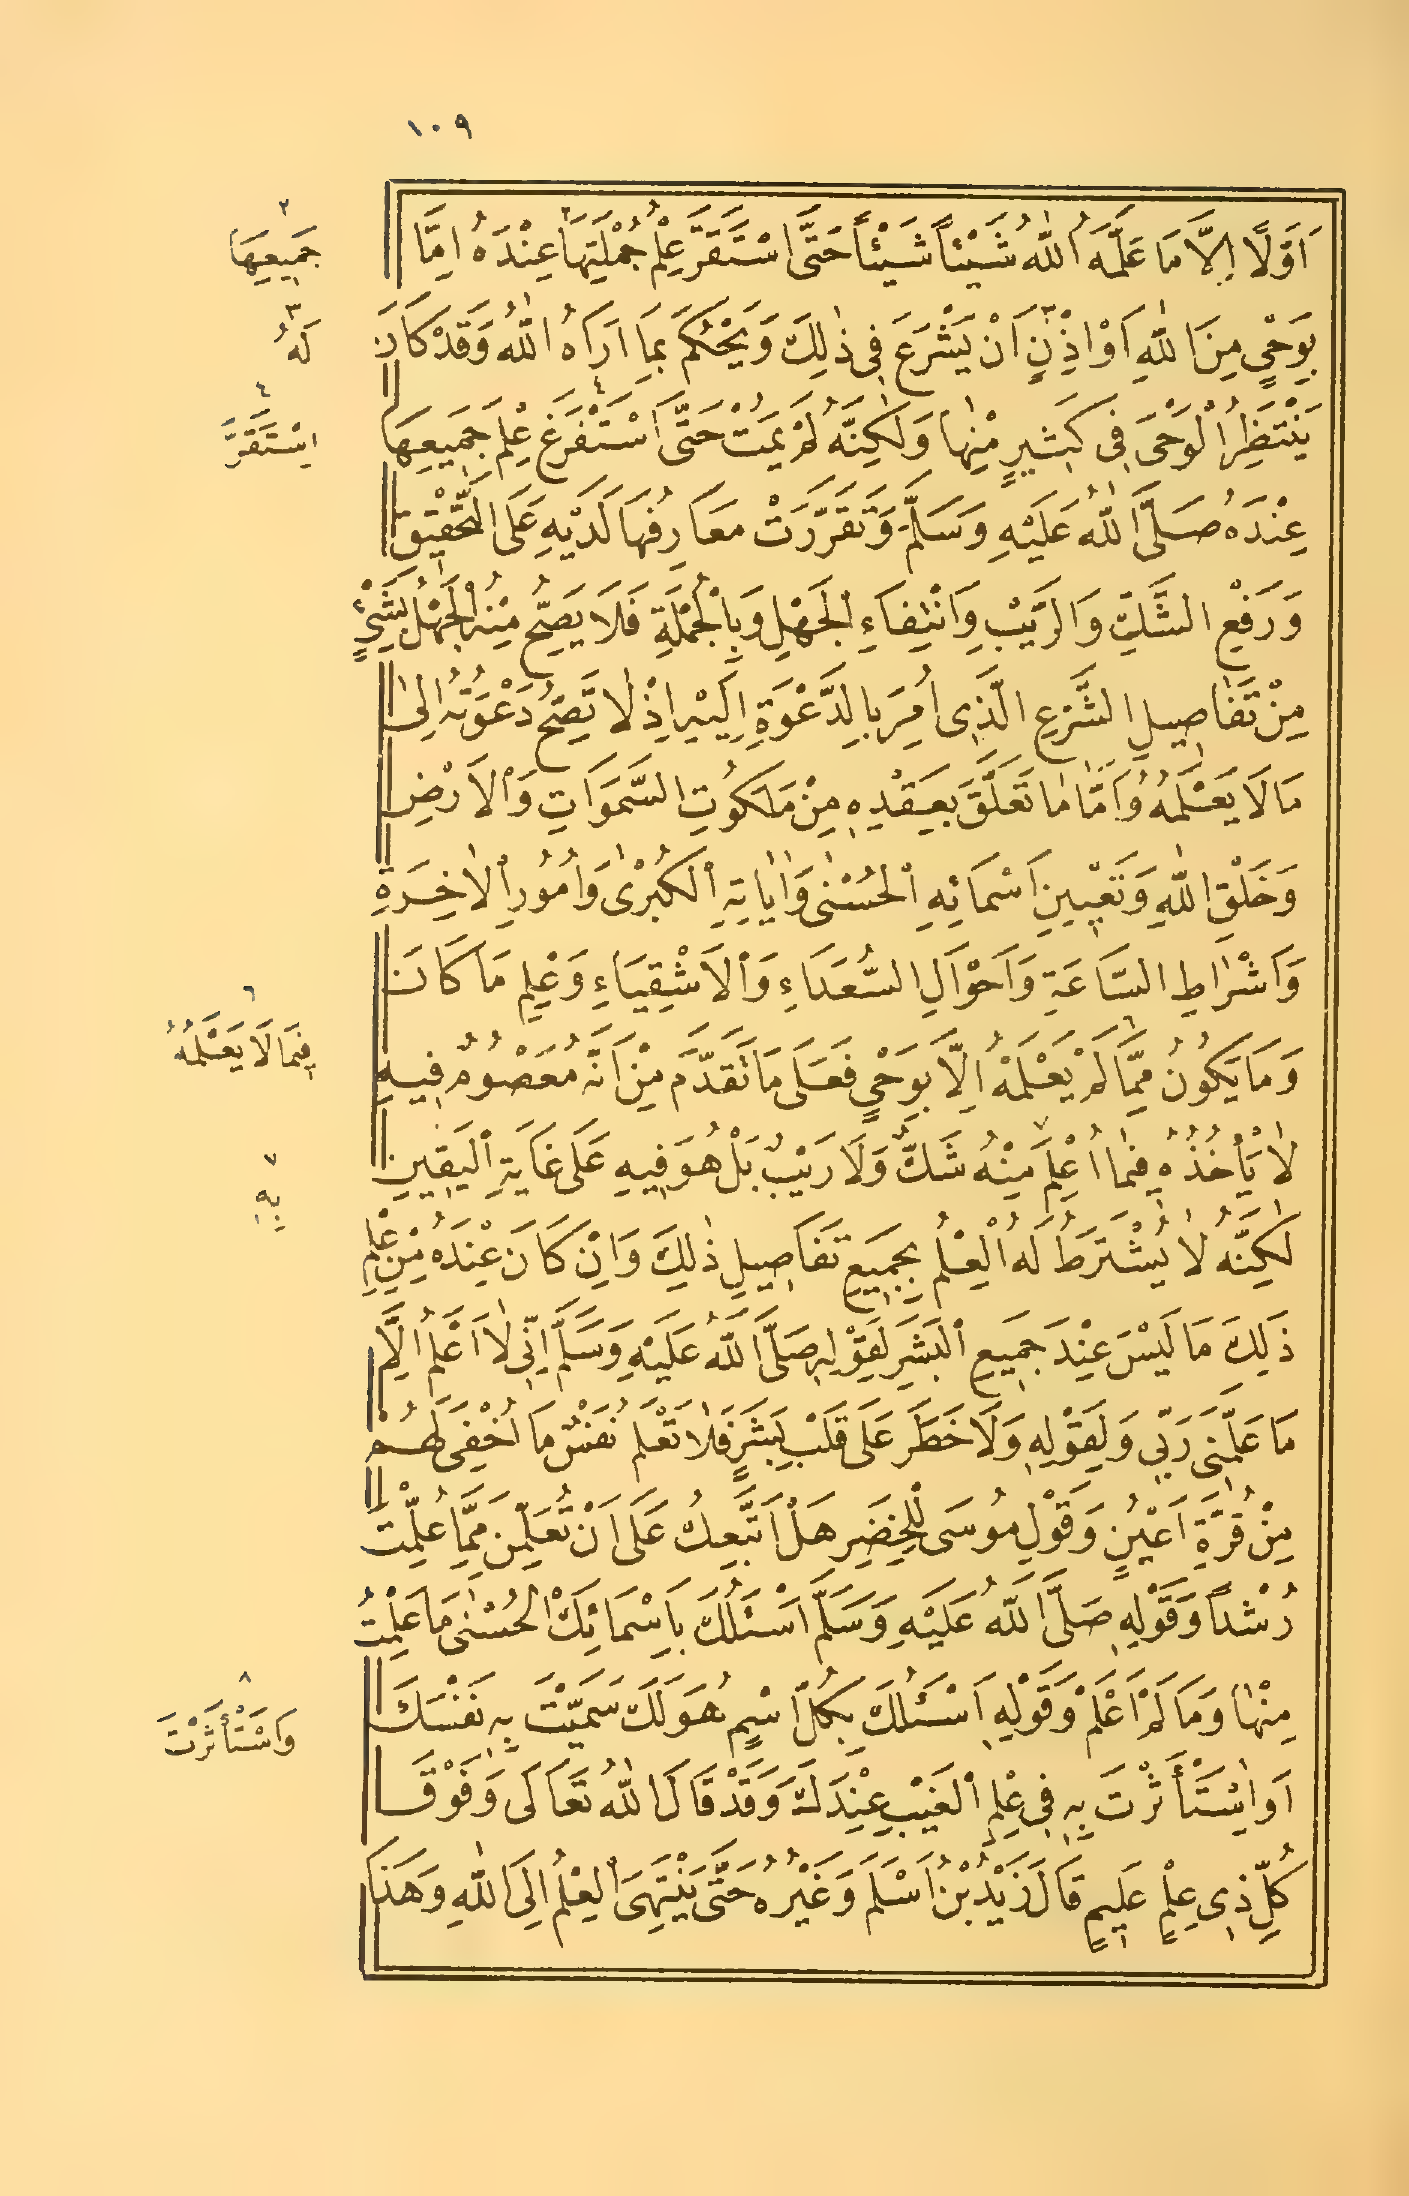 ١٠٩
اَوَّلًا اِلَّا مَا عَلَّمَهُ اللّٰهُ شَيْئاً شَيْئاً حَتَّى اسْتَقَرَّ عِلْمُ جُمْلَتِهَا ٢ عِنْدَهُ اِمَّا
بِوَحْيٍ مِنَ اللّٰهِ اَوْ اِذْنٍ ٣ اَنْ يَشْرَعَ فِى ذٰلِكَ وَيَحْكُمَ بِمَا اَرَاهُ اللّٰهُ وَقَدْ كَانَ
يَنْتَظِرُ الْوَحْىَ فِى كَثِيرٍ مِنْهَا وَلٰكِنَّهُ لَمْ يَمُتْ حَتَّى اَسْتَفْرَغَ ٤ عِلْمَ جَمِيعِهَا
عِنْدَهُ صَلَّى اللّٰهُ عَلَيْهِ وَسَلَّمَ وَتَقَرَّرَتْ مَعَارِفُهَا لَدَيْهِ عَلَى التَّحْقِيقِ
وَرَفْعِ الشَّكِّ وَالرَّيْبِ وَانْتِفَاءِ الْجَهْلِ وَبِالْجُمْلَةِ فَلَا يَصِحُّ مِنْهُ الْجَهْلُ بِشَيْءٍ
مِنْ تَفَاصِيلِ الشَّرْعِ الَّذِى اُمِرَ بِالدَّعْوَةِ اِلَيْهِ اِذْ لَا تَصِحُّ دَعْوَتُهُ اِلٰى
مَا لَا يَعْلَمُهُ وَاَمَّا مَا تَعَلَّقَ بِعَقْدِهِ مِنْ مَلَكُوتِ السَّمَوَاتِ وَالْاَرْضِ
وَخَلْقِ اللّٰهِ وَتَعْيِينِ اَسْمَائِهِ الْحُسْنٰى وَاٰيَاتِهِ الْكُبْرٰى وَاُمُورِ الْاٰخِرَةِ
وَاَشْرَاطِ السَّاعَةِ وَاَحْوَالِ السُّعَدَاءِ وَالْاَشْقِيَاءِ وَعِلْمِ مَا كَانَ
وَمَا يَكُونُ مِمَّا لَمْ يَعْلَمْهُ ٦ اِلَّا بِوَحْيٍ فَعَلَى مَا تَقَدَّمَ مِنْ اَنَّهُ مَعْصُومٌ فِيهِ
لَا يَأْخُذُهُ فِيمَا اُعْلِمَ ٧ مِنْهُ شَكٌّ وَلَا رَيْبٌ بَلْ هُوَ فِيهِ عَلَى غَايَةِ الْيَقِينِ
لٰكِنَّهُ لَا يُشْتَرَطُ لَهُ الْعِلْمُ بِجَمِيعِ تَفَاصِيلِ ذٰلِكَ وَاِنْ كَانَ عِنْدَهُ مِنْ عِلْمِ
ذٰلِكَ مَا لَيْسَ عِنْدَ جَمِيعِ الْبَشَرِ لِقَوْلِهِ صَلَّى اللّٰهُ عَلَيْهِ وَسَلَّمَ اِنِّى لَا اَعْلَمُ اِلَّا
مَا عَلَّمَنِى رَبِّى وَلِقَوْلِهِ وَلَا خَطَرَ عَلَى قَلْبِ بَشَرٍ فَلَا تَعْلَمُ نَفْسٌ مَا اُخْفِىَ لَهُمْ
مِنْ قُرَّةِ اَعْيُنٍ وَقَوْلِ مُوسَى لِلْخَضِرِ هَلْ اَتَّبِعُكَ عَلَى اَنْ تُعَلِّمَنِ مِمَّا عُلِّمْتَ
رُشْداً وَقَوْلِهِ صَلَّى اللّٰهُ عَلَيْهِ وَسَلَّمَ اَسْئَلُكَ بِاَسْمَائِكَ الْحُسْنٰى مَا عَلِمْتُ
مِنْهَا وَمَا لَمْ اَعْلَمْ وَقَوْلِهِ اَسْئَلُكَ بِكُلِّ اسْمٍ هُوَ لَكَ سَمَّيْتَ بِهِ نَفْسَكَ
اَوِ اسْتَأْثَرْتَ بِهِ فِى عِلْمِ الْغَيْبِ عِنْدَكَ وَقَدْ قَالَ اللّٰهُ تَعَالَى وَفَوْقَ
كُلِّ ذِى عِلْمٍ عَلِيمٌ قَالَ زَيْدُ بْنُ اَسْلَمَ وَغَيْرُهُ حَتَّى يَنْتَهِىَ الْعِلْمُ اِلَى اللّٰهِ وَهَذَا
٢
جَمِيعِهَا
٣
لَهُ
٤
اِسْتَقَرَّ
٦
فِيمَا لَا يَعْلَمُهُ
٧
بِهِ
٨
وَاَسْتَأْثَرْتَ